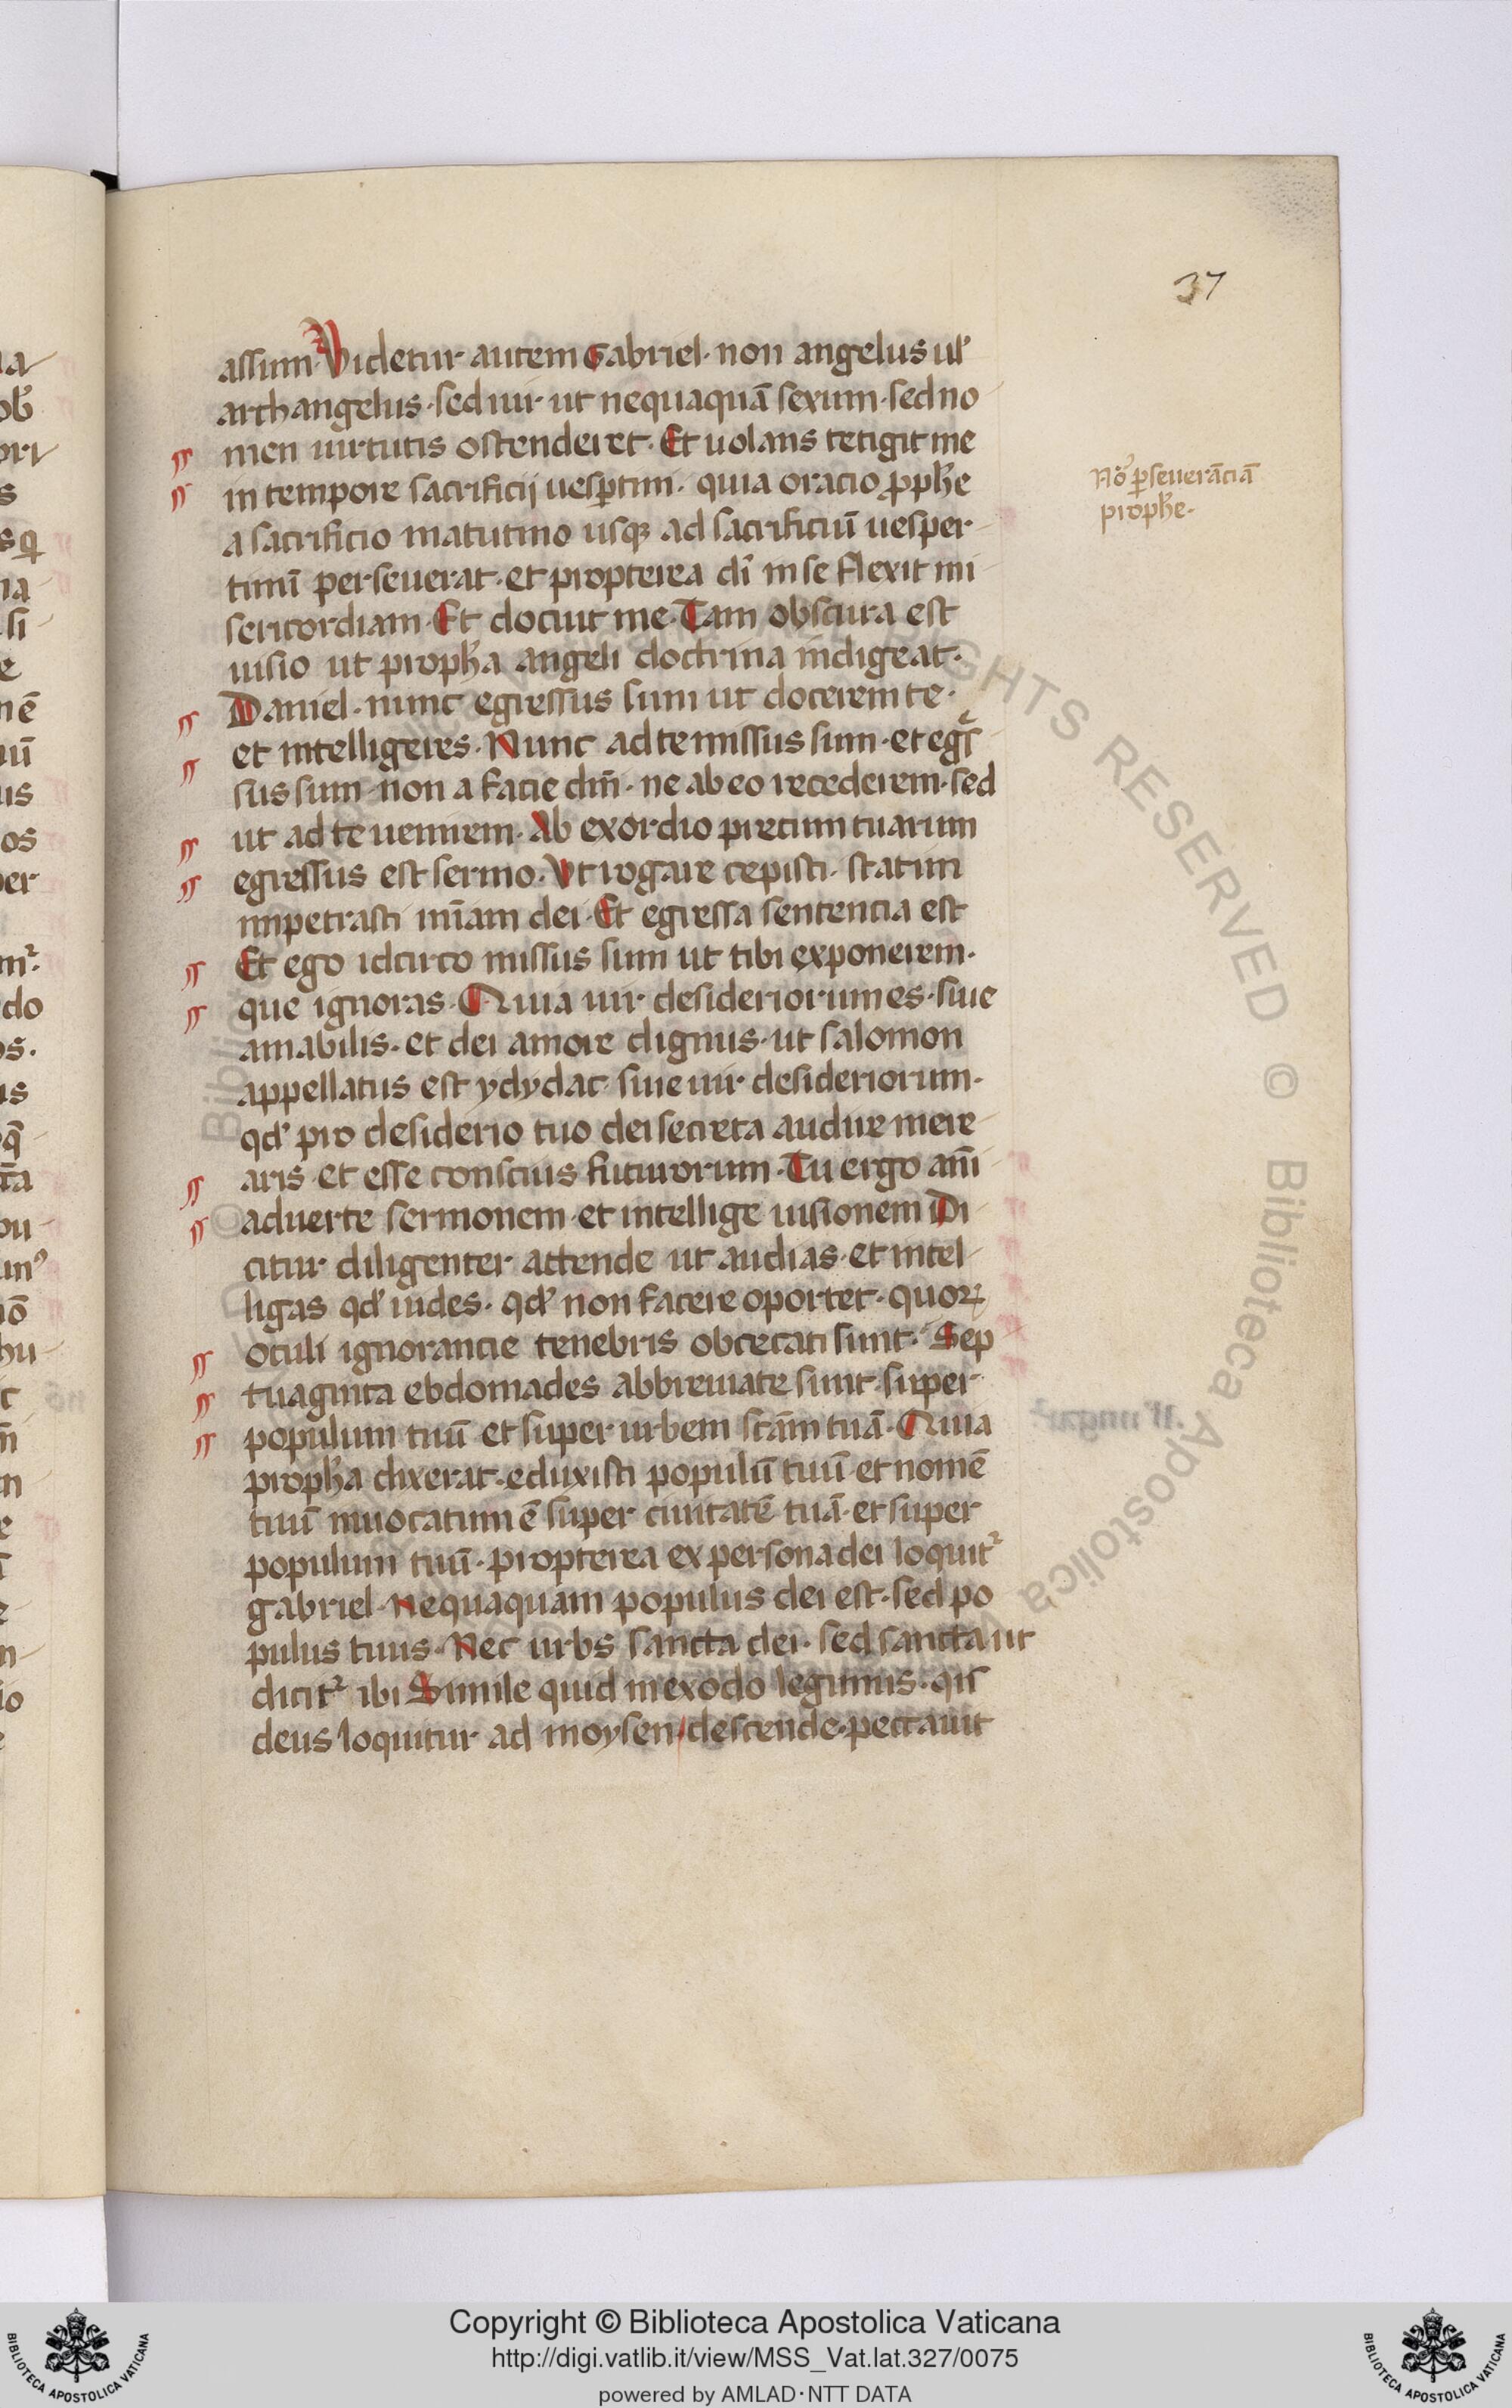 37
assum. Videtur autem Gabriel. non angelus ul̉
archangelus. sed uir. ut nequaquā sexum. sed no
men uirtutis ostenderet. Et uolans tetigit me
in tempore sacrificij uesꝑtini. quia oracio ꝓph̄e
a sacrificio matutino usqꝫ ad sacrificiū uesper
tinū perseuerat. et propterea dī in se flexit mi
sericordiam. Et docuit me. Tam obscura est
uisio ut proph̄a angeli doctrina indigeat.
Daniel. nunc egressus sum ut docerem te.
et intelligeres. Nunc ad te missus sum. et egr̄s
sus sum. non a facie dn̄i. ne ab eo recederem. sed
ut ad te uenirem. Ab exordio precum tuarum
egressus est sermo. Vt rogare cepisti. statim
impetrasti mīam dei. Et egressa sentencia est
Et ego idcirco missus sum ut tibi exponerem.
que ignoras. Quia uir desideriorum es. siue
amabilis. et dei amore dignus. ut salomon
appellatus est ydydac siue uir desideriorum.
qd̉ pro desiderio tuo dei secreta audire mere
aris et esse conscius futurorum. Tu ergo aīi
aduerte sermonem. et intellige uisionem Di
citur diligenter attende ut audias. et intel
ligas qd̉ uides. qd̉ non facere oportet. quoꝝ
oculi ignorancie tenebris obcecati sunt. Sep
tuaginta ebdomades abbreuiate sunt. super
populum tuū et super urbem scām tuā. Quia
proph̄a dixerat. eduxisti populū tuū. et nomē
tuū inuocatum ē super ciuitatē tuā. et super
populum tuū. propterea ex persona dei loquitᷣ
gabriel. nequaquam populus dei est. sed po
pulus tuus. Nec urbs sancta dei. sed sancta ut
dicitᷣ ibi Simile quid in exodo legimus. qn̄
deus loquitur ad moysen / descende. peccauit
Nō ꝑseuerāciā
proph̄e.
© Biblioteca Apostolica
RIGHTS RESERVED
Copyright © Biblioteca Apostolica Vaticana
http://digi.vatlib.it/view/MSS_Vat.lat.327/0075
powered by AMLAD·NTT DATA
BIBLIOTECA APOSTOLICA VATICANA
BIBLIOTECA APOSTOLICA VATICANA